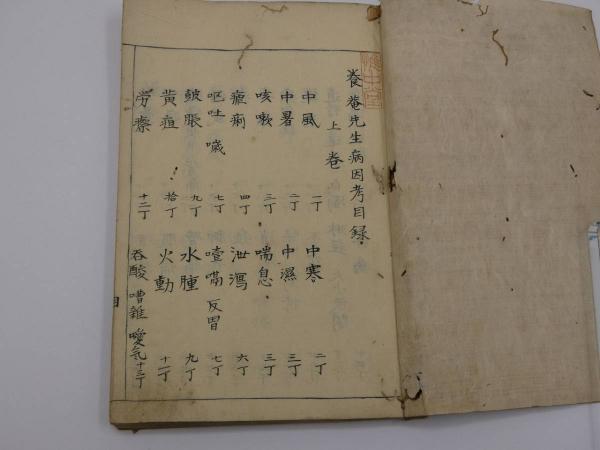 養菴先生病因考目録
上巻
中風 一丁 中寒 二丁
中暑 二丁 中濕 三丁
咳嗽 三丁 喘息 三丁
瘧痢 四丁 泄瀉 六丁
嘔吐 噦 七丁 噎嗝 反胃 七丁
皷脹 九丁 水腫 九丁
黄疸 拾丁 火動 十一丁
労瘵 十二丁 吞酸 嘈雜 噯気 十三丁
目